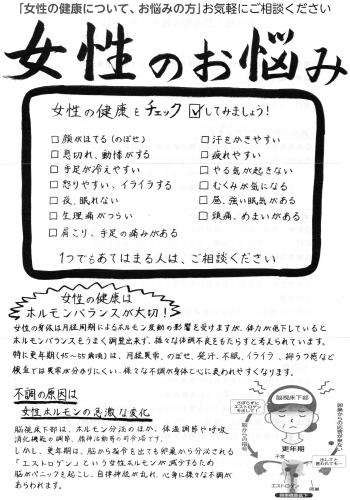 「女性の健康について、お悩みの方」お気軽にご相談ください
女性のお悩み
女性の健康をチェック☑してみましょう!
□顔がほてる(のぼせ)
□息切れ、動悸がする
□手足が冷えやすい
□怒りやすい、イライラする
□夜、眠れない
□生理痛がつらい
□肩こり、手足の痛みがある
□汗をかきやすい
□疲れやすい
□やる気が起きない
□むくみが気になる
□昼、強い眠気がある
□頭痛、めまいがある
1つでもあてはまる人は、ご相談ください
女性の健康は
ホルモンバランスが大切!
女性の身体は月経周期によるホルモン変動の影響を受けますが、体力が低下していると
ホルモンバランスもうまく調整出来ず、様々な体調不良をもたらすと考えられています。
特に更年期(45~55歳頃)は、月経異常、のぼせ、発汗、不眠、イライラ、抑うつ感など
検査では異常が分かりにくい、様々な不調が身体と心に現われやすくなります。
不調の原因は
女性ホルモンの急激な変化
脳視床下部は、ホルモン分泌のほか、体温調節や呼吸
消化機能の調節、精神活動等の司令塔です。
しかし、更年期は、脳から指令を出ても卵巣から分泌される
「エストロゲン」という女性ホルモンが減少するため
脳がパニックを起こし、自律神経が乱れ、心身に様々な不調が
あらわれます。
脳視床下部
エストロゲン
を出して!
脳からの指令
更年期
卵巣からの反応が来ない
子宮
エストロゲン
卵巣